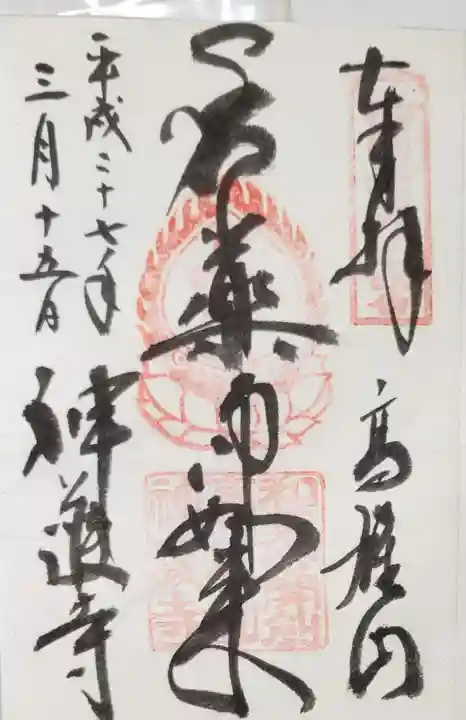 奉拝 高雄山
薬師如来
平成二十七年
三月十五日
神護寺